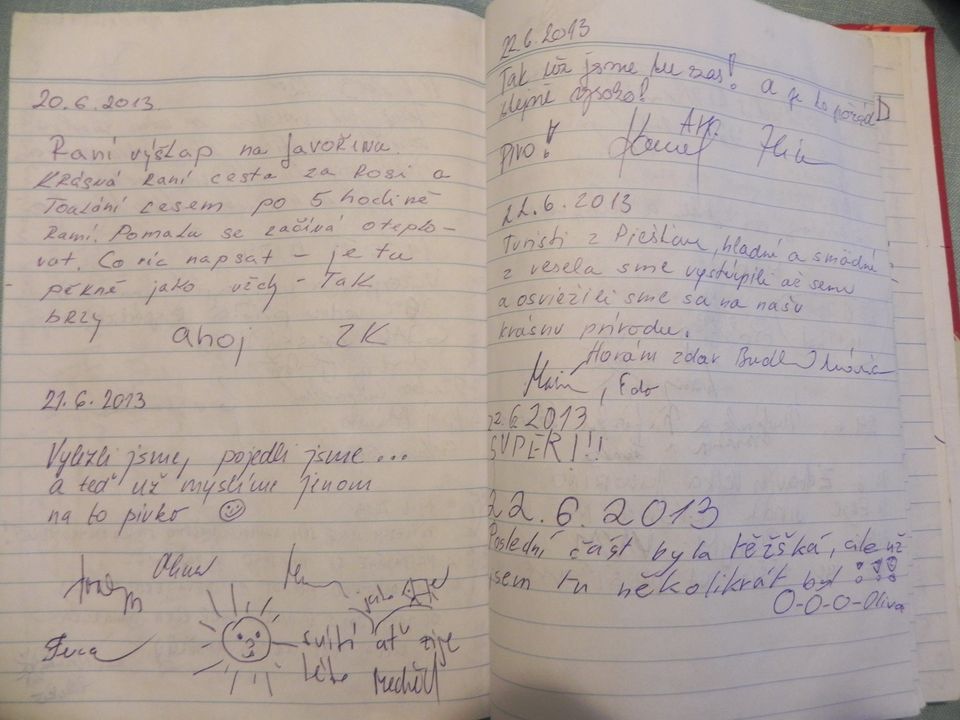 20.6.2013
Raní výšlap na Javořinu.
Krásná raní cesta za Rosi a
Toulání lesem po 5 hodině
Raní. Pomalu se začíná oteplo-
vat. Co víc napsat - je tu
pěkně jako vždy - Tak
brzy
ahoj ZK
21.6.2013
Vylezli jsme, pojedli jsme...
a teď už myslíme jenom
na to pivko ☺
svítí ať žije
22.6.2013
Tak už jsme tu zas! a je to pořád
stejně vysoko!
Pivo!
22.6.2013
Turisti z Piešťan, hladní a smädní
z vesela sme vystúpili až sem
a osviežili sme sa na našu
krásnu prírodu.
Horám zdar
, Edo
22.6.2013
SUPER!!!
22.6.2013
Poslední část byla těžšká, ale už
jsem tu několikrát byl !!!
O-O-O-Oliva